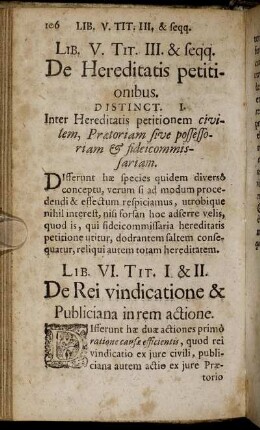 106 LIB. V. TIT. III, & seqq.
LIB. V. TIT. III. & seqq.
De Hereditatis petiti-
onibus.
DISTINCT. I.
Inter Hereditatis petitionem civi-
lem, Prætoriam sive possesso-
riam & fideicommis-
sariam.
Differunt hæ species quidem diversò
conceptu, verum si ad modum proce-
dendi & effectum respiciamus, utrobique
nihil interest, nisi forsan hoc adferre velis,
quod is, qui fideicommissaria hereditatis
petitione utitur, dodrantem saltem conse-
quatur, reliqui autem totam hereditatem.
LIB. VI. TIT. I. & II.
De Rei vindicatione &
Publiciana in rem actione.
Differunt hæ duæ actiones primò
ratione causæ efficientis, quod rei
vindicatio ex jure civili, publi-
ciana autem actio ex jure Præ-
torio